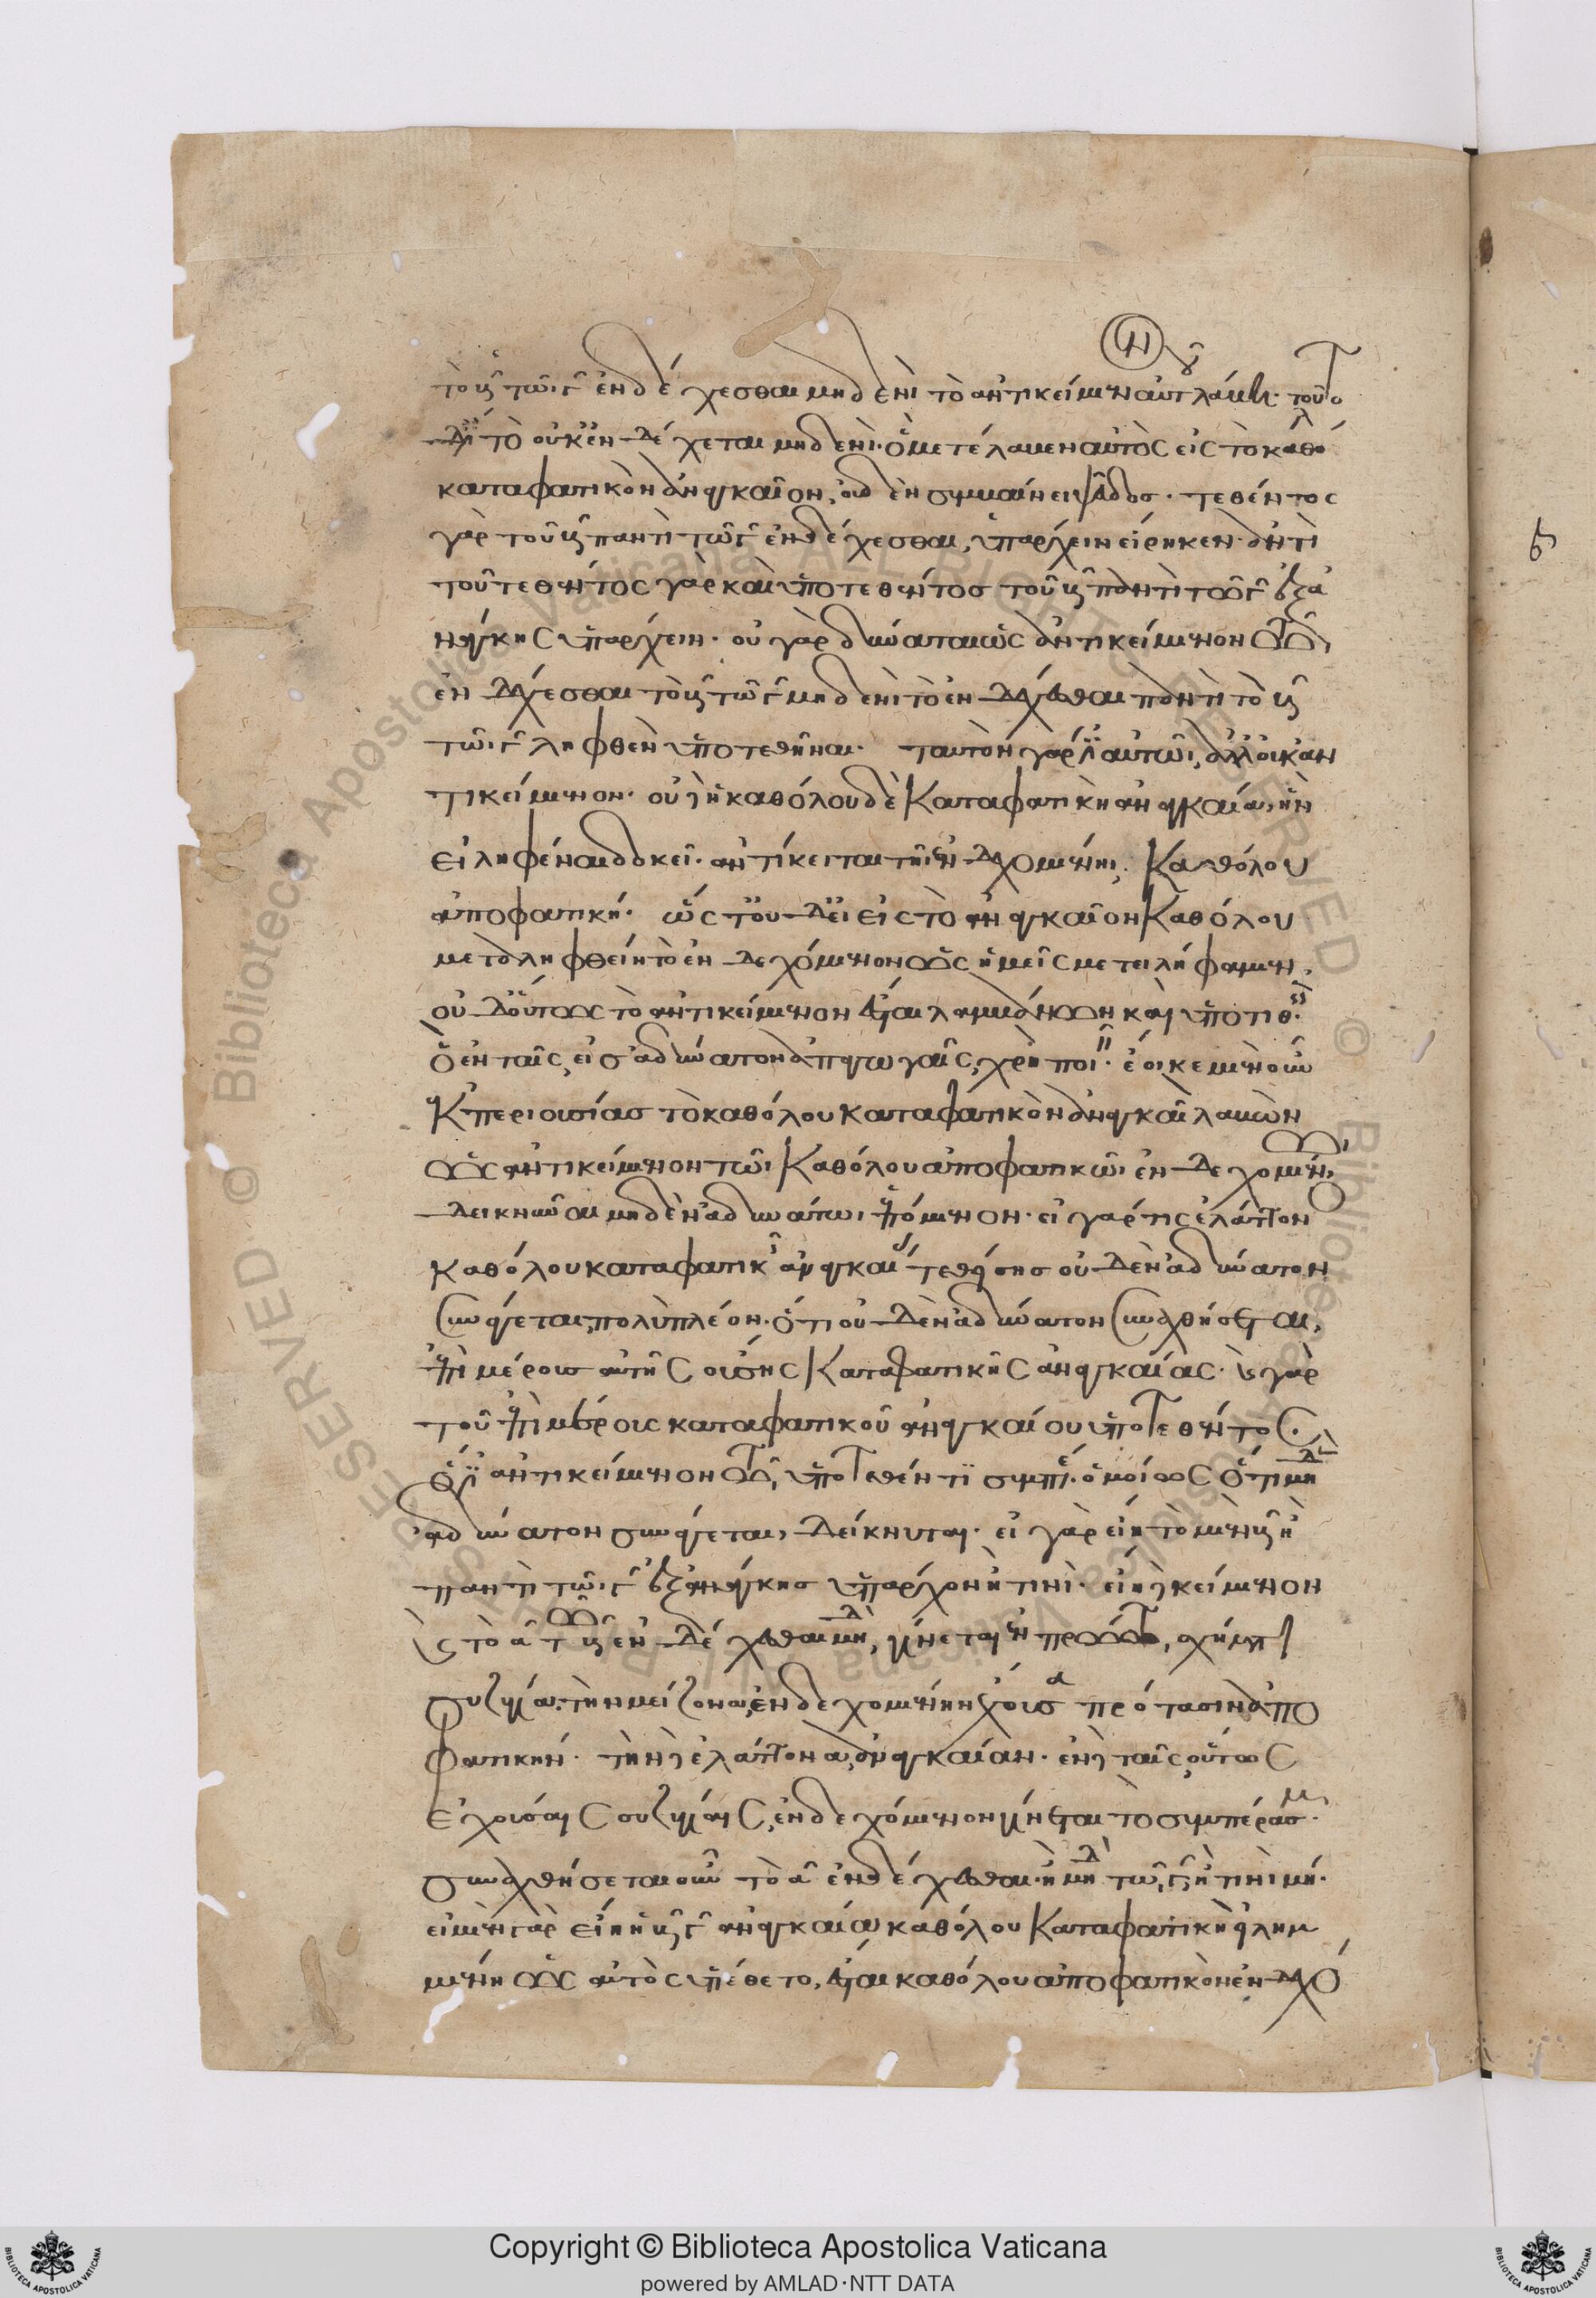 τὸ β τῶι γ ἐνδέχεσθαι μηδενὶ τὸ ἀντικείμενον αὐτοῦ λάβη. τοῦτο
δέ ἐστι τὸ οὐκ ἐνδέχεται μηδενί. ὃ μετέλαβεν αὐτὸς εἰς τὸ καθόλου
καταφατικὸν ἀναγκαῖον, οὐδὲν σημαίνει ψεῦδος. τεθέντος
γὰρ τοῦ β παντὶ τῶι γ ἐνδέχεσθαι, ὑπάρχειν εἴρηκεν. ἀντὶ
τοῦ τεθέντος γὰρ καὶ ὑποτεθέντος τοῦ β παντὶ τῶι γ ἐξ ἀ
νάγκης ὑπάρχειν. οὐ γὰρ δύναται ὡς ἀντικείμενον τῶι
ἐνδέχεσθαι τὸ β τῶι γ μηδενὶ τὸ ἐνδέχεσθαι παντὶ τὸ β
τῶι γ ληφθὲν ὑποτεθῆναι. ταυτὸν γάρ ἐστιν αὐτῶι, ἀλλ' οὐκ ἀν
τικείμενον. οὐδ' ἡ καθόλου δὲ καταφατικὴ ἀναγκαία, ἣν
εἰληφέναι δοκεῖ. ἀντίκειται τῆι ἐνδεχομένηι καθόλου
ἀποφατικῆ. ὥστε οὐδ' εἰ εἰς τὸ ἀναγκαῖον καθόλου
μεταληφθείη τὸ ἐνδεχόμενον ὡς ἡμεῖς μετειλήφαμεν,
οὐδ' οὕτως τὸ ἀντικείμενον ἔσται λαμβάνων καὶ ὑποτιθεὶς
ὃ ἐν ταῖς εἰς ἀδύνατον ἀπαγωγαῖς χρὴ ποιεῖν. ἔοικε μὲν οὖν
ἐκ περιουσίας τὸ καθόλου καταφατικὸν ἀναγκαῖον λαβὼν
ὡς ἀντικείμενον τῶι καθόλου ἀποφατικῶι ἐνδεχομένωι
δεικνῦναι μηδὲν ἀδύνατον ἑπόμενον. εἰ γάρ τῆς ἐλάττον
καθόλου καταφατικῆς ἀναγκαίας τεθείσης οὐδὲν ἀδύνατον
συνάγεται, πολὺ πλέον. ὅτι οὐδὲν ἀδύνατον συναχθήσεται,
ἐπὶ μέρους αὐτῆς οὔσης καταφατικῆς ἀναγκαίας. καὶ γὰρ
τοῦ ἐπὶ μέρους καταφατικοῦ ἀναγκαίου ὑποτεθέντος.
ὅ ἐστιν ἀντικείμενον τῶι ὑποτεθέντι συμπεράσματι. ὁμοίως ὅτι μηδὲν
ἀδύνατον συνάγεται, δείκνυται. εἰ γὰρ εἴη τὸ μὲν β ἢ
παντὶ τῶι γ ἐξ ἀνάγκης ὑπάρχον ἢ τινί. εἴη δὲ κείμενον
καὶ τὸ α τῶι β ἐνδέχεσθαι μηδενί, γίνεται ἐν πρώτωι σχήματι
συζυγία, τὴν μείζονα ἐνδεχομένην ἔχουσα πρότασιν ἀπο
φατικήν. τὴν δὲ ἐλάττονα, ἀναγκαίαν. ἐν δὲ ταῖς οὕτως
ἐχούσαις συζυγίαις, ἐνδεχόμενον γίνεται τὸ συμπέρασμα.
συναχθήσεται οὖν τὸ α ἐνδέχεσθαι ἢ μηδενὶ τῶι γ ἢ τινὶ μή.
εἰ μὲν γὰρ εἴη ἡ β γ ἀναγκαία καθόλου καταφατικὴ εἰλημ
μένη ὡς αὐτὸς ὑπέθετο, ἔσται καθόλου ἀποφατικὸν ἐνδεχό
Copyright © Biblioteca Apostolica Vaticana
powered by AMLAD·NTT DATA